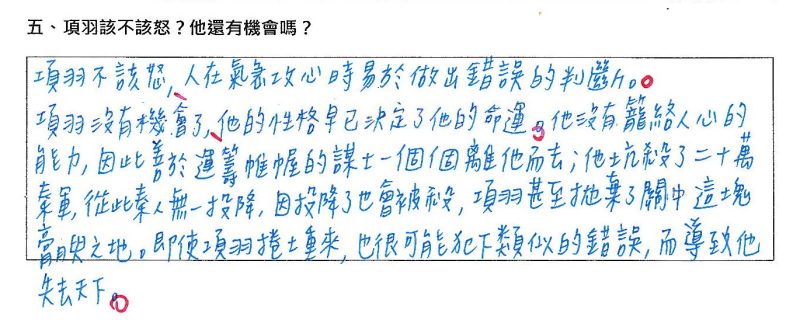 五、項羽該不該怒？他還有機會嗎？
項羽不該怒，人在氣急攻心時易於做出錯誤的判斷。
項羽沒有機會了，他的性格早已決定了他的命運。他沒有籠絡人心的
能力，因此善於運籌帷幄的謀士一個個離他而去；他坑殺了二十萬
秦軍，從此秦人無一投降，因投降了也會被殺，項羽甚至拋棄了關中這塊
膏腴之地。即使項羽捲土重來，也很可能犯下類似的錯誤，而導致他
失去天下。